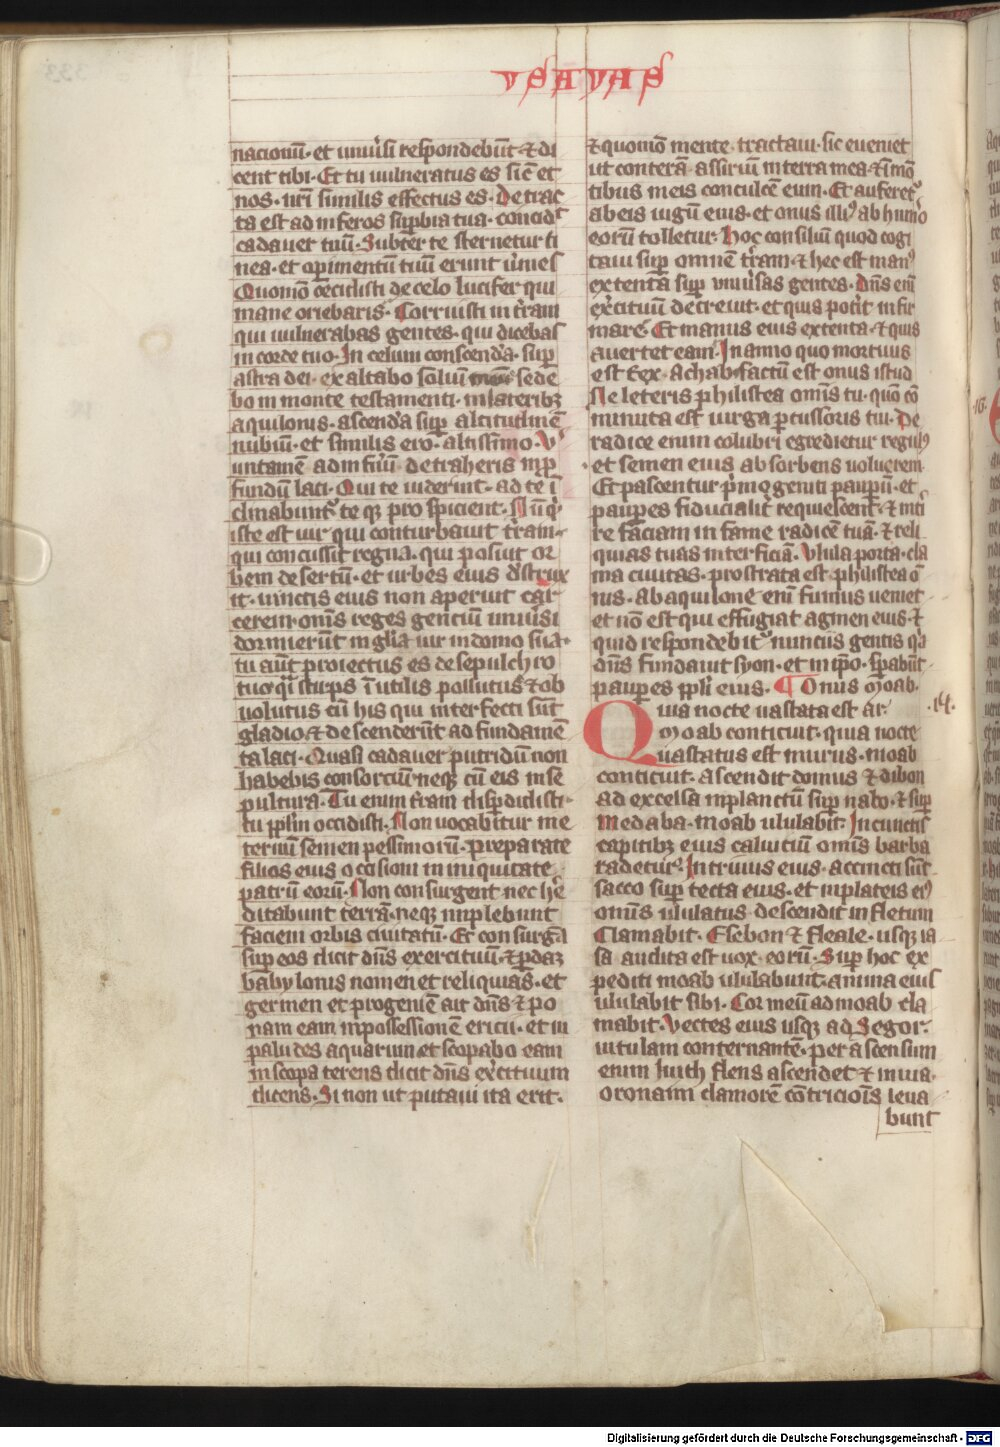 ysayas
nacionū. et uniūsi respondebūt ⁊ di
cent tibi. Et tu uulneratus es sic̄ et
nos. nr̄i similis effectus es. Detrac
ta est ad inferos suꝑbia tua. concidᵗ
cadauer tuū. Subter te sternetur ti
nea. et opimentū tuū erunt ūmes
Quomō cecidisti de celo lucifer qui
mane oriebaris. Corruisti in tr̄am
qui uulnerabas gentes. qui dicebas
in corde tuo. In celum conscendā. suꝑ
astra dei. exaltabo soliū meū sede
bo in monte testamenti. in laterib
aquilonis. ascendā suꝑ altitudinē
nubiū. et similis ero. altissimo. V
untamē ad infnū detraheris in ꝓ
fundū laci. Qui te uiderint. ad te ī
clinabuntᵘʳ te qꝫ prospicient. Nūqͥ
iste est uir qui conturbauit tr̄am.
qui concussit regna. qui posuit or
bem desertū. et urbes eius dstrux
it. uinctis eius non aperuit car
cerem. om̄s reges gentiū uniūsi
dormierūt in glīa uir in domo sua.
tu aūt proiectus es de sepulchro
tuo qͣsi stirps īutilis pollutus ⁊ ob
uolutus cū his qui interfecti sūt
gladio. ⁊ descenderūt ad fundamē
ta laci. Quasi cadauer putridū non
habebis consorciū neqꝫ cū eis in se
pultura. Tu enim tr̄am disꝑdidisti.
tu ppl̄m occidisti. Non uocabitur in e
ternū semen pessimorū. preparate
filios eius occisioni in iniquitate
patrū eorū. Non consurgent nec he
ditabunt terrā. neqꝫ implebunt
faciem orbis ciuitatū. Et consurgā
suꝑ eos dicit dn̄s exercituū. ⁊ ꝑdaꝫ
babylonis nomen et reliquias. et
germen et progeniē ait dn̄s ⁊ po
nam eam in possessionē ericii. et in
paludes aquarum et scopabo eam
in scopa terens dicit dn̄s ex̄cituum
dicens. Si non ut putaui ita erit.
⁊ quomō mente tractaui. sic eueniet
ut conterā assiriū in terra mea. ⁊ ī mō
tibus meis conculcē eum. Et auferetᵘʳ
ab eis iugū eius. et onus illiꝰ ab humo
eorū tolletur. Hoc consiliū quod cogi
taui suꝑ omnē tr̄am. ⁊ hec est manꝰ
extenta suꝑ uniūsas gentes. Dn̄s em̄
ex̄cituū decreuit. et quis potit infir
mare. Et manus eius extenta. ⁊ quis
auertet eam. In anno quo mortuus
est Rex Achab. factū est onus istud
Ne leteris philistea om̄is tu. quō cō
minuta est uirga ꝑcussoris tui. De
radice enim colubri egredietur regulꝰ
et semen eius absorbens uolucrem.
Et pascentur p̄mogeniti pauꝑū. et
pauꝑes fiducialit̄ requiescent. ⁊ inti
re faciam in fame radicē tuā. ⁊ reli
quias tuas interficiā. Vlula porta. cla
ma ciuitas. prostrata est philistea o
nis. ab aquilone eni fumus ueniet
et non est qui effugiat agmen eius. ⁊
quid respondebitᵘʳ nunciis gentis qͥa
dn̄s fundauit syon. et in ip̄o. sꝑabūt
pauꝑes ppl̄i eius. ¶ Onus moab.
Quia nocte uastata est ar .14.
moab conticuit. quia nocte
uastatus est murus. moab
conticuit. Ascendit domus ⁊ dibon
ad excelsa in planctū suꝑ nabo. ⁊ suꝑ
medaba. moab ululabit. In cunctis
capitibꝫ eius caluiciū om̄is barba
radeturᵘʳ. In triuiis eius. accincti sūt
sacco suꝑ tecta eius. et in plateis eiꝰ
omīs ululatus descendit in fletum
Clamabit. Esebon ⁊ fleale. usqꝫ ia
sa audita est uox. eorū. Suꝑ hoc ex
pediti moab ululabunt. anima eius
ululabit sibi. Cor meū ad moab cla
mabit. Vectes eius usqꝫ ad Segor.
uitulam conternantē. per ascensum
enim luith flens ascendet ⁊ in uia.
oronaim clamorē cōtriciōis leua
bunt
Digitalisierung gefördert durch die Deutsche Forschungsgemeinschaft - DFG